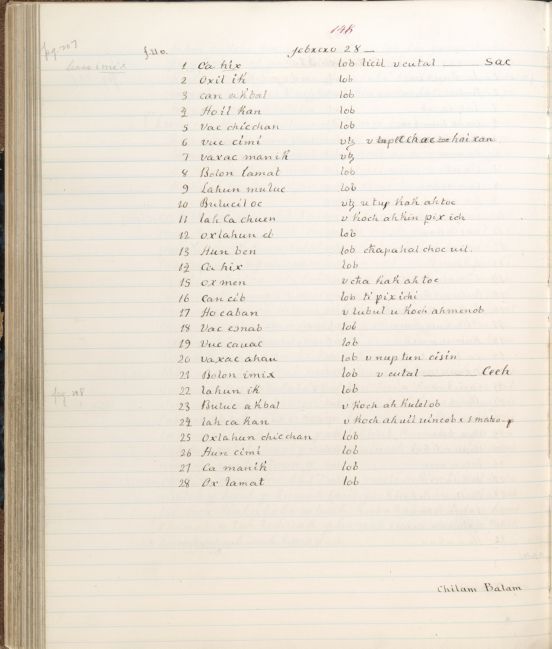 148
pg. 207
f. 11 o. febrero 28 —
1 Ca hix lob licil u cutal — Sac
2 Oxil ik lob
3 can akbal lob
4 Hoil Kan lob
5 Vac chicchan lob
6 vuc cimi
7 vaxac manik
8 Bolon lamat lob
9 Lahun muluc lob
10 Buluciloc utz u tup Kak ah toc
11 lah Ca chuen u Koch ahkin pix ich
12 oxlahun eb lob
13 Hun ben lob chapahal choc uil
14 Ca hix lob
15 ox men u cha Kak ah toc
16 Can cib lob ti pix ichi
17 Ho caban u lubul u Koch ahmenob
18 Vac esnab lob
19 Vuc cauac lob
20 vaxac ahau lob u nup tun cisin
21 Bolon imix lob u cutal — Ceeh
22 lahun ik lob
23 Buluc akbal u Koch ah Kulelob
24 lah ca Kan u Koch
25 Oxlahun chicchan lob
26 Hun cimi lob
27 Ca manik lob
28 Ox lamat lob
Chilam Balam